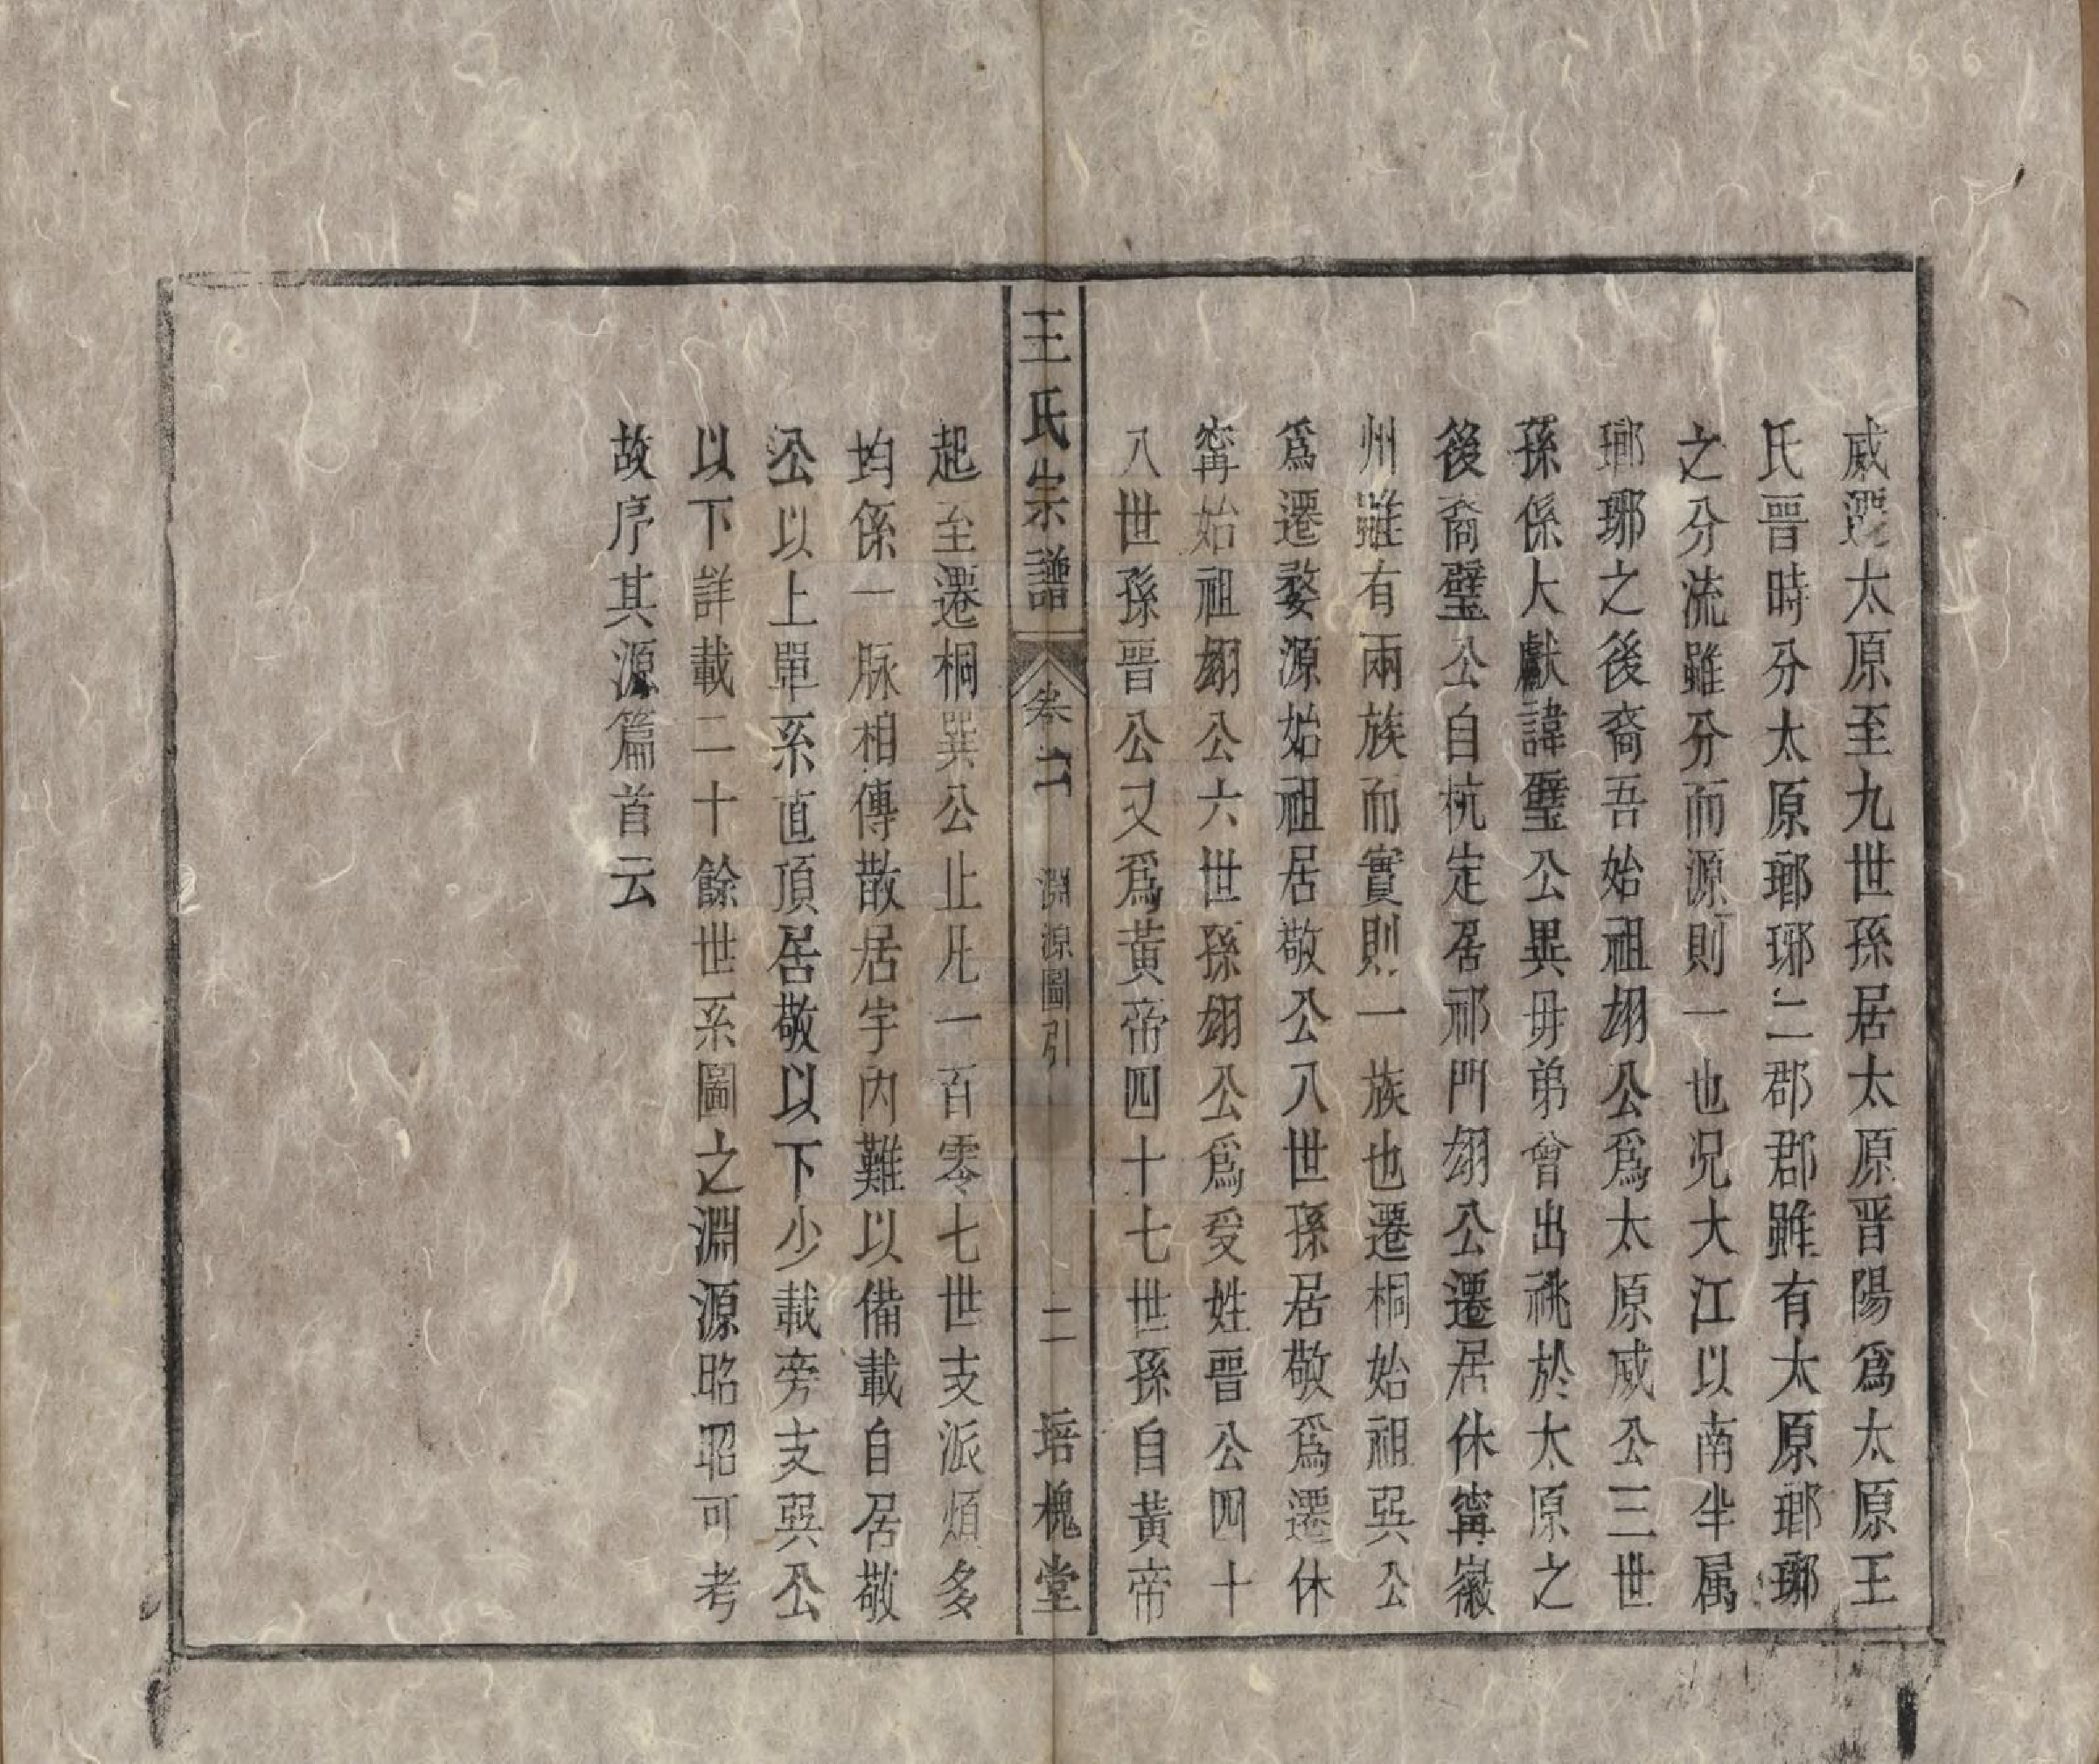 威遷太原至九世孫居太原晋陽爲太原王
氏晉時分太原瑯琊二郡郡雖有太原瑯琊
之分流雖分而源則一也况大江以南半属
瑯琊之後裔吾始祖翃公爲太原威公三世
孫係大獻諱璧公異毋弟曾出祧於太原之
後裔璧公自杭定居祁門翃公遷居休寗徽
州雖有兩族而實則一族也遷桐始祖巽公
爲遷婺源始祖居敬公八世孫居敬爲遷休
寗始祖翃公六世孫翃公爲受姓晉公四十
八世孫晉公又爲黃帝四十七世孫自黃帝
王氏宗譜 卷二 淵源圖引 二 培槐堂
起至遷桐巽公止凡一百零七世支派煩多
均係一脉相傳散居宇内難以備載自居敬
公以上單系直頂居敬以下少載旁支巽公
以下詳載二十餘世系圖之淵源昭昭可考
故序其源篇首云